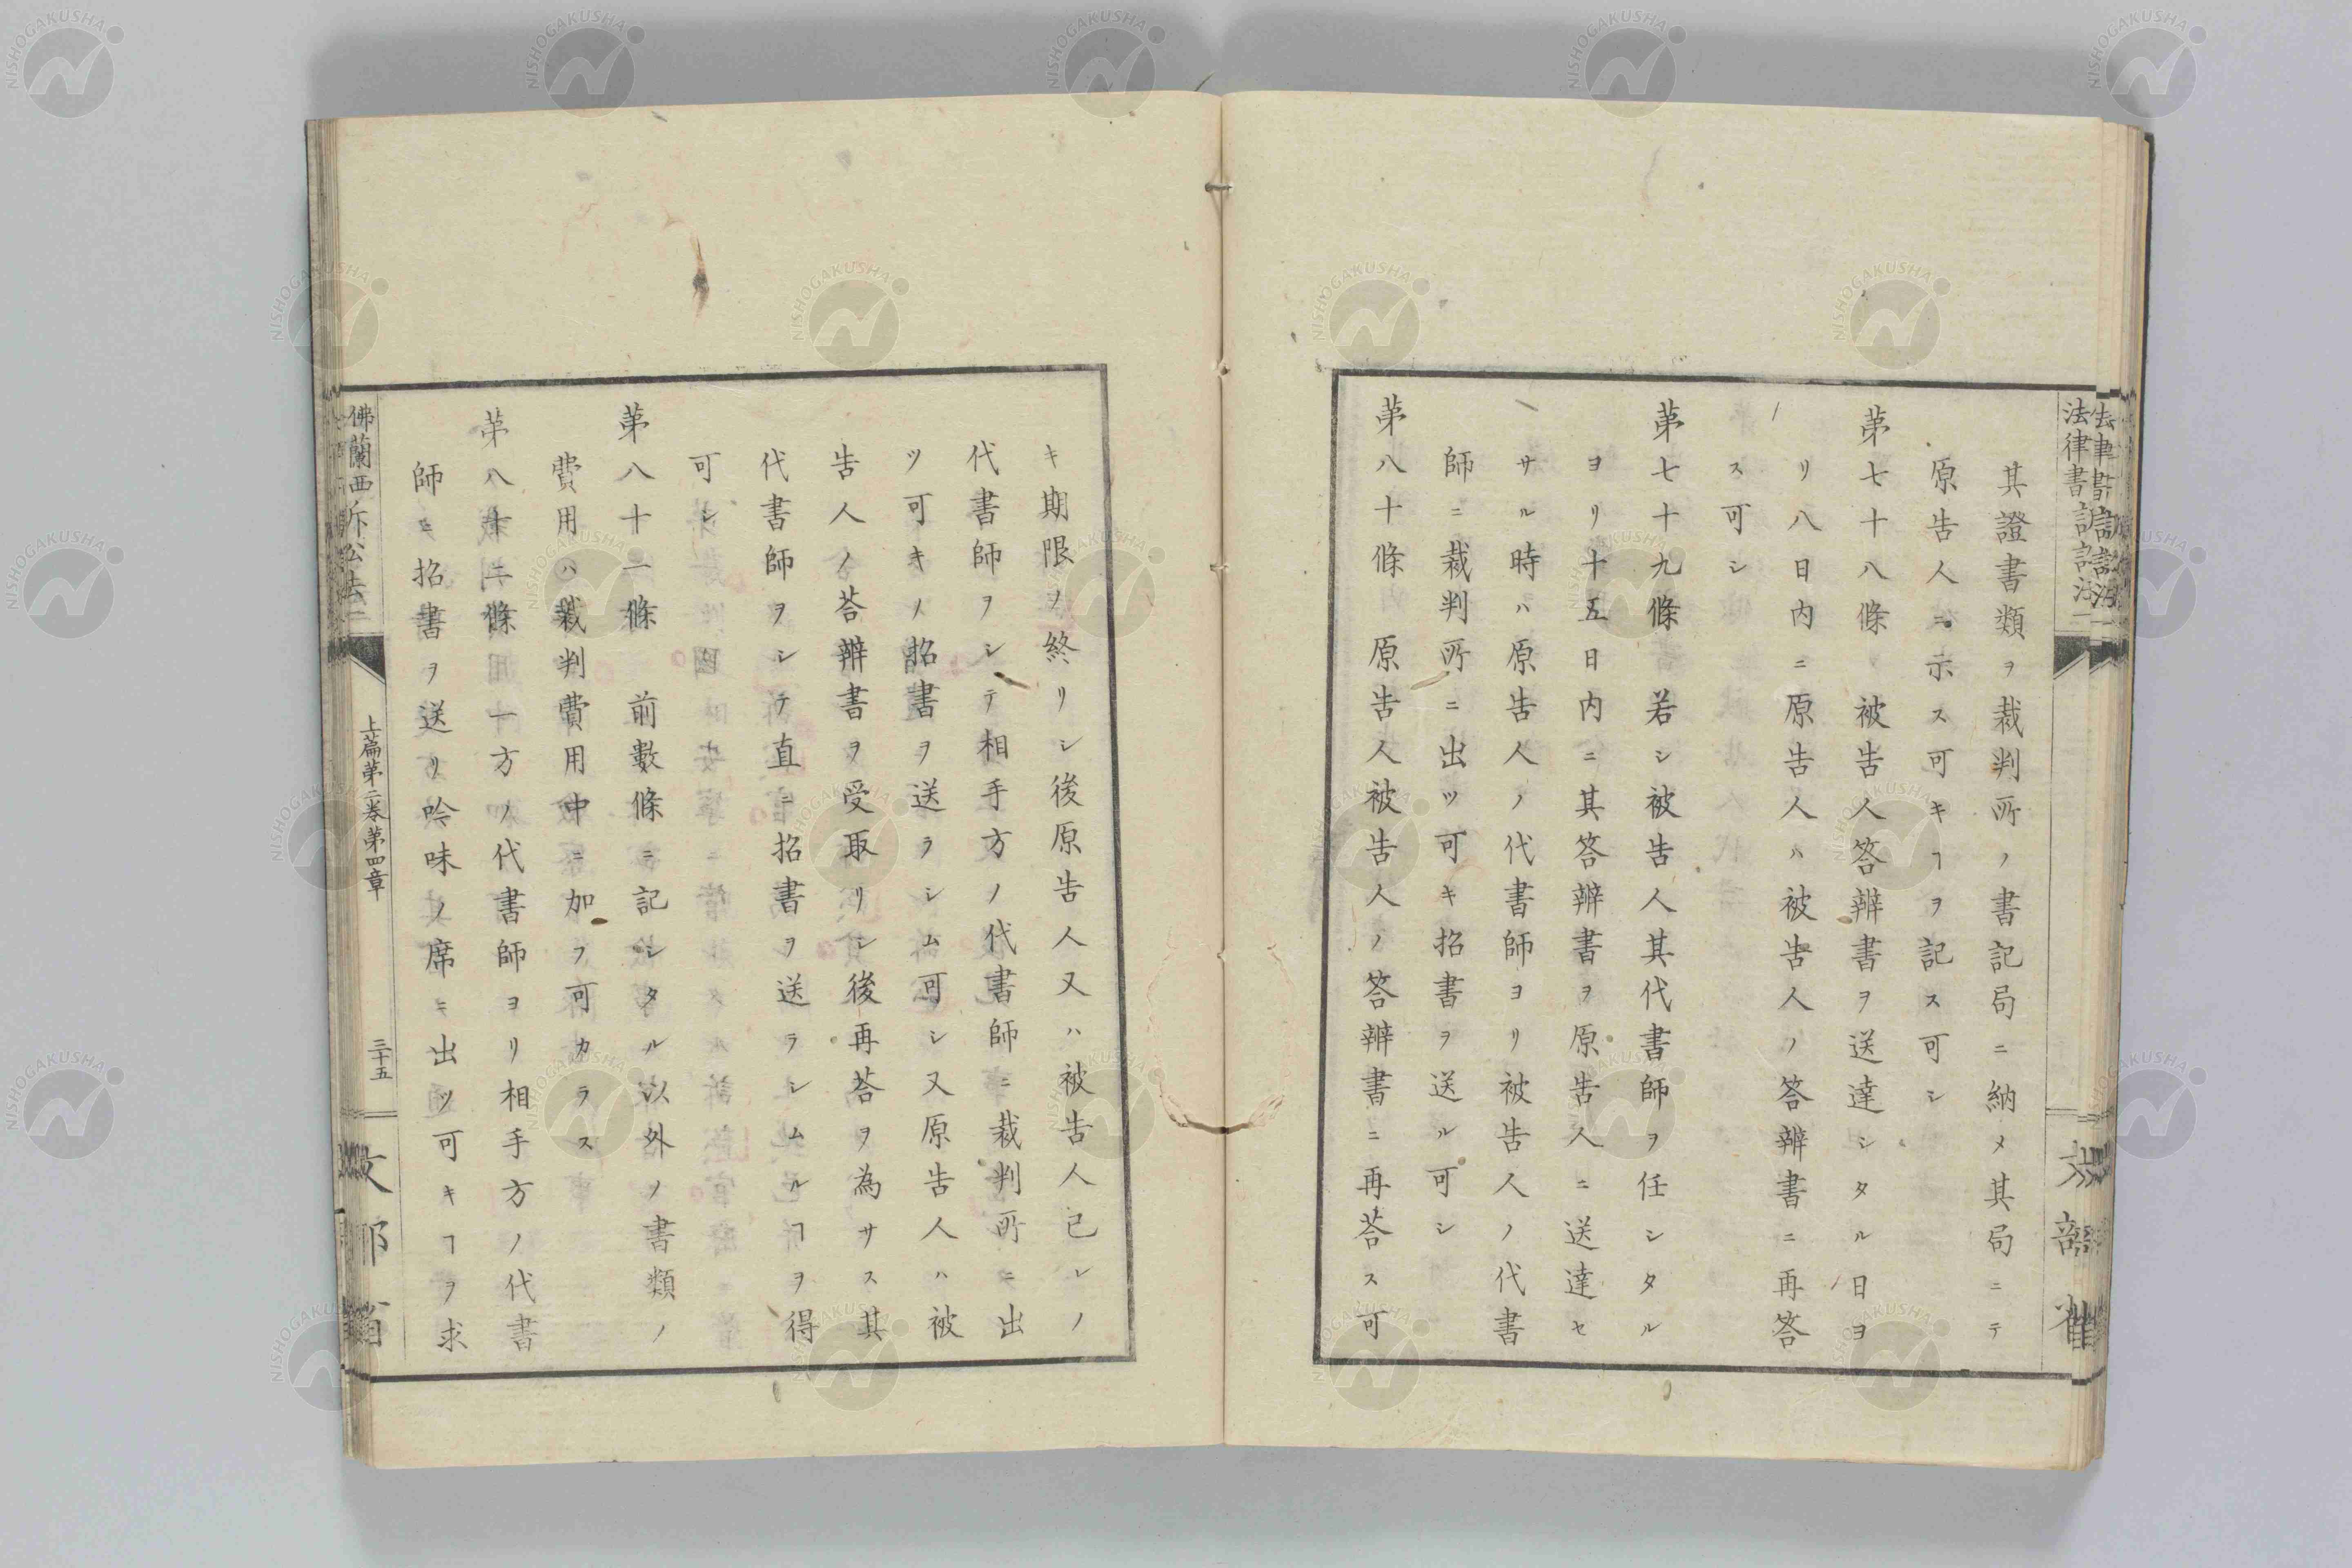 其證書類ヲ裁判所ノ書記局ニ納メ其局ニテ
原告人ニ示ス可キヿヲ記ス可シ
第七十八條 被告人答辨書ヲ送達シタル日ヨ
リ八日内ニ原告人ハ被告人ノ答辨書ニ再答
ス可シ
第七十九條 若シ被告人其代書師ヲ任シタル
ヨリ十五日内ニ其答辨書ヲ原告人ニ送達セ
サル時ハ原告人ノ代書師ヨリ被告人ノ代書
師ニ裁判所ニ出ツ可キ招書ヲ送ル可シ
第八十條 原告人被告人ノ答辨書ニ再荅ス可
キ期限ヲ終リシ後原告人又ハ被告人己レノ
代書師ヲシテ相手方ノ代書師ニ裁判所ニ出
ツ可キノ招書ヲ送ラシム可シ又原告人ハ被
告人ノ荅辨書ヲ受取リシ後再荅ヲ為サス其
代書師ヲシテ直ニ招書ヲ送ラシムルヿヲ得
可シ
第八十一條 前數條ニ記シタル以外ノ書類ノ
費用ハ裁判費用中ニ加フ可カラス
第八十二條 一方ノ代書師ヨリ相手方ノ代書
師ニ招書ヲ送リ吟味ノ席ニ出ツ可キヿヲ求
佛蘭西訴訟法二
上篇第二巻第四章
三十五
文部省
NISHOGAKUSHA